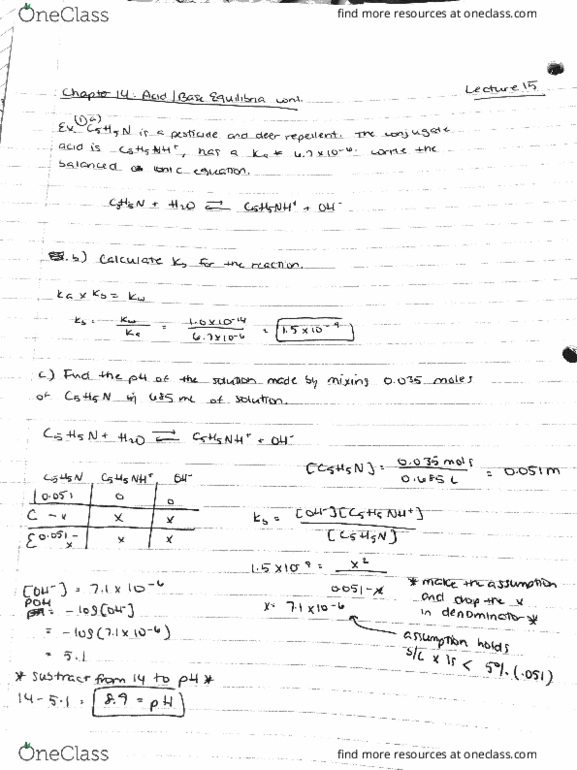 OneClass find more resources at oneclass.com
Chapter 14: Acid/Base Equilibria cont. Lecture 15
Ex. (1) a) C5H5N is a pesticide and deer repellent. The conjugate
acid is C5H5NH+, has a Ka = 6.7x10-6. Write the
balanced ionic equation.
C5H5N + H2O ⇌ C5H5NH+ + OH-
b) Calculate Kb for the reaction.
Ka x Kb = Kw
Kb = Kw/Ka = 1.0x10-14/6.7x10-6 = 1.5x10-9
c) Find the pH of the solution made by mixing 0.035 moles
of C5H5N in 685 mL of solution.
C5H5N + H2O ⇌ C5H5NH+ + OH-
[C5H5N] = 0.035 mols/0.685 L = 0.051 M
C5H5N C5H5NH+ OH-
I 0.051 0 0
C -x x x
E 0.051-x x x
Kb = [OH-][C5H5NH+]/[C5H5N]
1.5x10-9 = x2/0.051-x
* make the assumption
and drop the x
in denominator *
x = 7.1x10-6
assumption holds
s/c x is < 5% (.051)
[OH-] = 7.1x10-6
POH = -log[OH-]
= -log(7.1x10-6)
= 5.1
* subtract from 14 to pH *
14-5.1 = 8.9 = pH
OneClass find more resources at oneclass.com